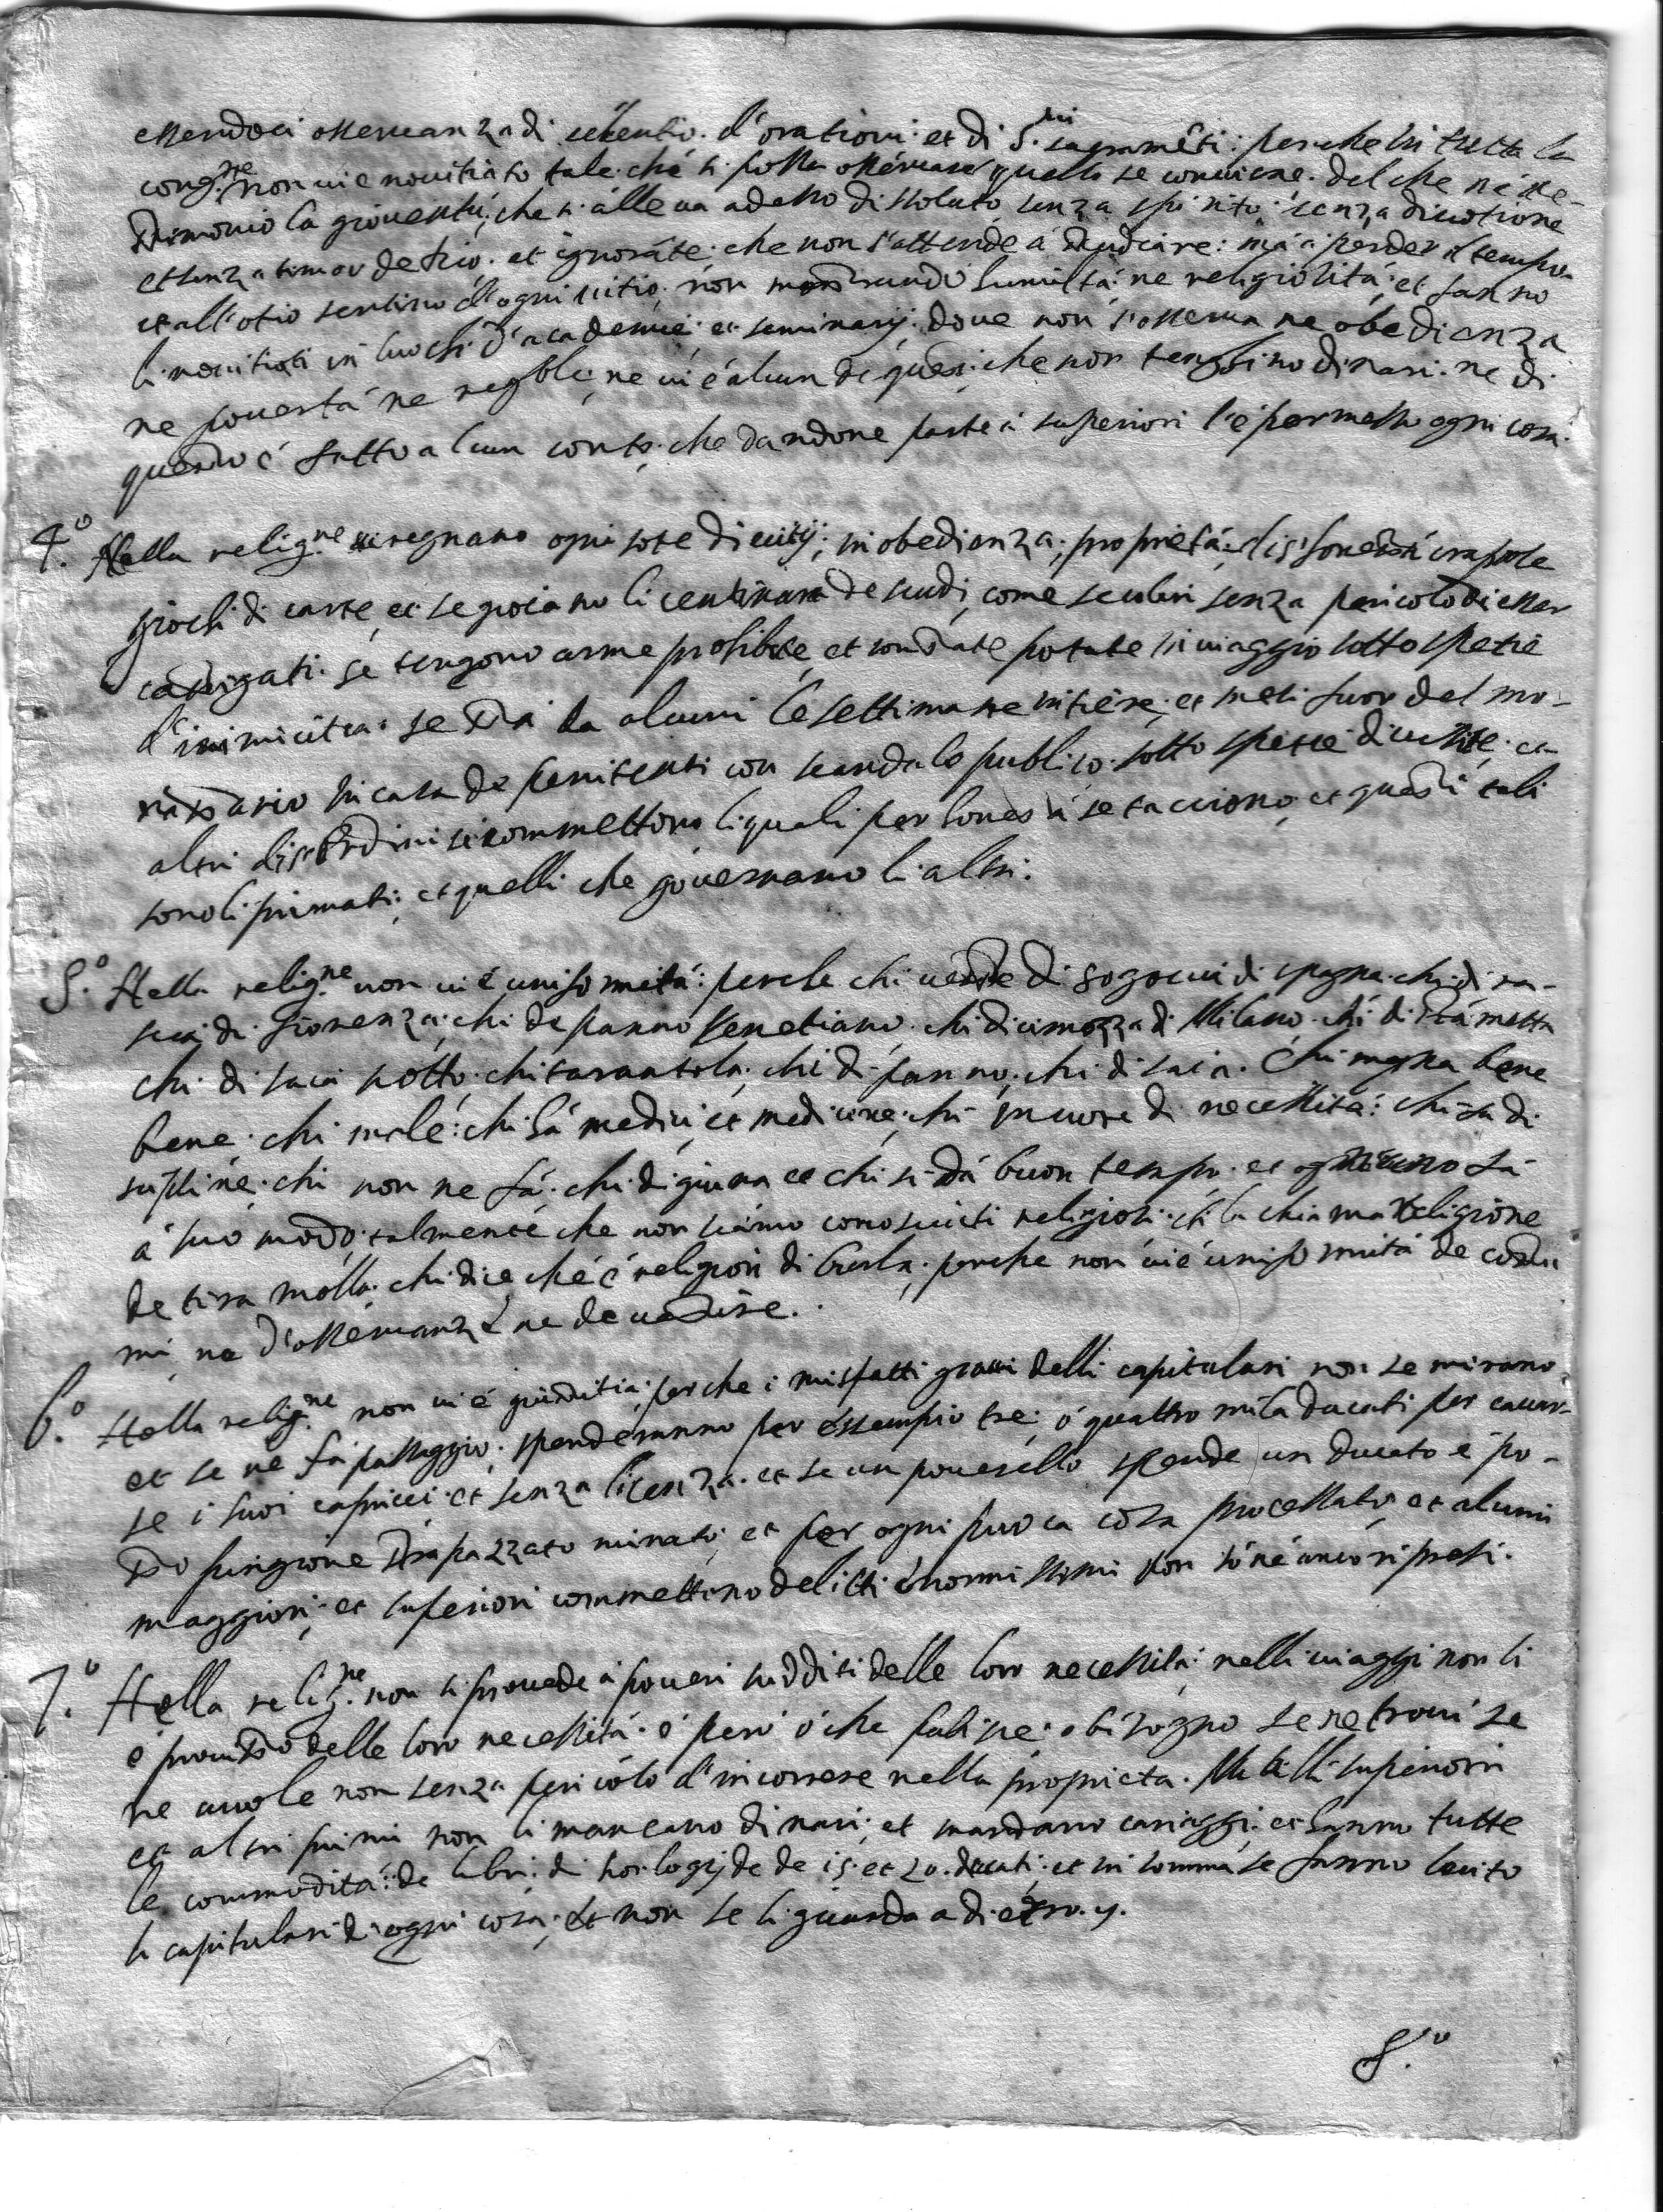 essendoci osservanza di silentio. d'orationi. et di S.mi sagramẽti: perche in tutta la
cong.ne non vi e novitiato tale. che si possa osservare quello se conviene. del che n'é te-
stimonio la gioventú, che si alleva adesso dissoluta senza spirito. senza divotione
et senza timor de Dio. et ignorãte. che non s'attende á studiare: má á perder il tempo
et all'otio sentina d'ogni vitio, non mostrando humiltá. ne religiositá; et fanno
li novitiati in luochi d'academie. et seminarij, dove non s'osserva ne obedienza
ne povertá ne regole; ne vi é alcun de questi. che non tenghino dinari. ne di
questo é fatto alcun conto. che dandone parte á superiori l'é permesso ogni cosa.
4.o Nella relig.ne regnano ogni sorte di vitij; inobedienza; proprietá; dishonestá crapole
giochi di carte, et se giocano li centinara de scudi, come secolari senza pericolo di esser
castigati. se tengono arme prohibite, et portate in viaggio sotto spetie
d'inimicitia: se stá da alcuni le settimane intiere; et mesi fuor del mo-
nasterio in casa de penitenti con scandalo publico. sotto spetie di visite; et
altri disordini si commettono, li quali per honestá se tacciono; et questi tali
sono li primati; et quelli che governano li altri.
5.o Nella relig.ne non vi é uniformitá: perche chi veste di di spagna. chi di ra-
scia di fiorenza; chi de panno Venetiano. chi di cimozza di Milano. chi di stametta
chi di saia scotto. chi tarantola; chi di panno; chi di saia. Chi magna bene
bene; chi male: chi há medici, et medicine; chi muore di necessitá: chi fa di
sipline; chi non ne fá. chi digiuna et chi si dá buon tempo. et ogn'uno fá
á suo modo. talmente che non siamo conosciuti religiosi. chi la chiama religione
de tira molla. chi dice, che é religion di burla. perche non vi é uniformitá de costu
mi ne d'osservanze ne de vestire.
6.o Nella relig.ne non vi é giustitia; perche i misfatti gravi delli capitulari non se mirano,
et se ne fá passaggio; spenderanno per essempio tre; ó quattro mila ducati per cavar-
se i suoi capricci. et senza licenza. et se un poverello spende un ducato é po-
sto prigione strapazzato minato; et per ogni puoca cosa processato; et alcuni
maggiori; et superiori commettono delitti enormissimi non só né anco ripresi.
7.o Nella relig.ne non si provede á poveri sudditi delle loro necessitá; nelli viaggi non li
é provisto delle loro necessitá. é peró ó che patisce. ó bisogno se ne trovi se
ne vuole non senza pericolo d'incorrere nella proprieta. Ma alli superiori
et altri primi non li mancano dinari; et mandano cariaggi; et hanno tutte
le commoditá: de libri; di horlogij de de 15. et 20. ducati; et in somma se fanno lecito
li capitulari di ogni cosa; et non se li guarda a dietro.
8.o